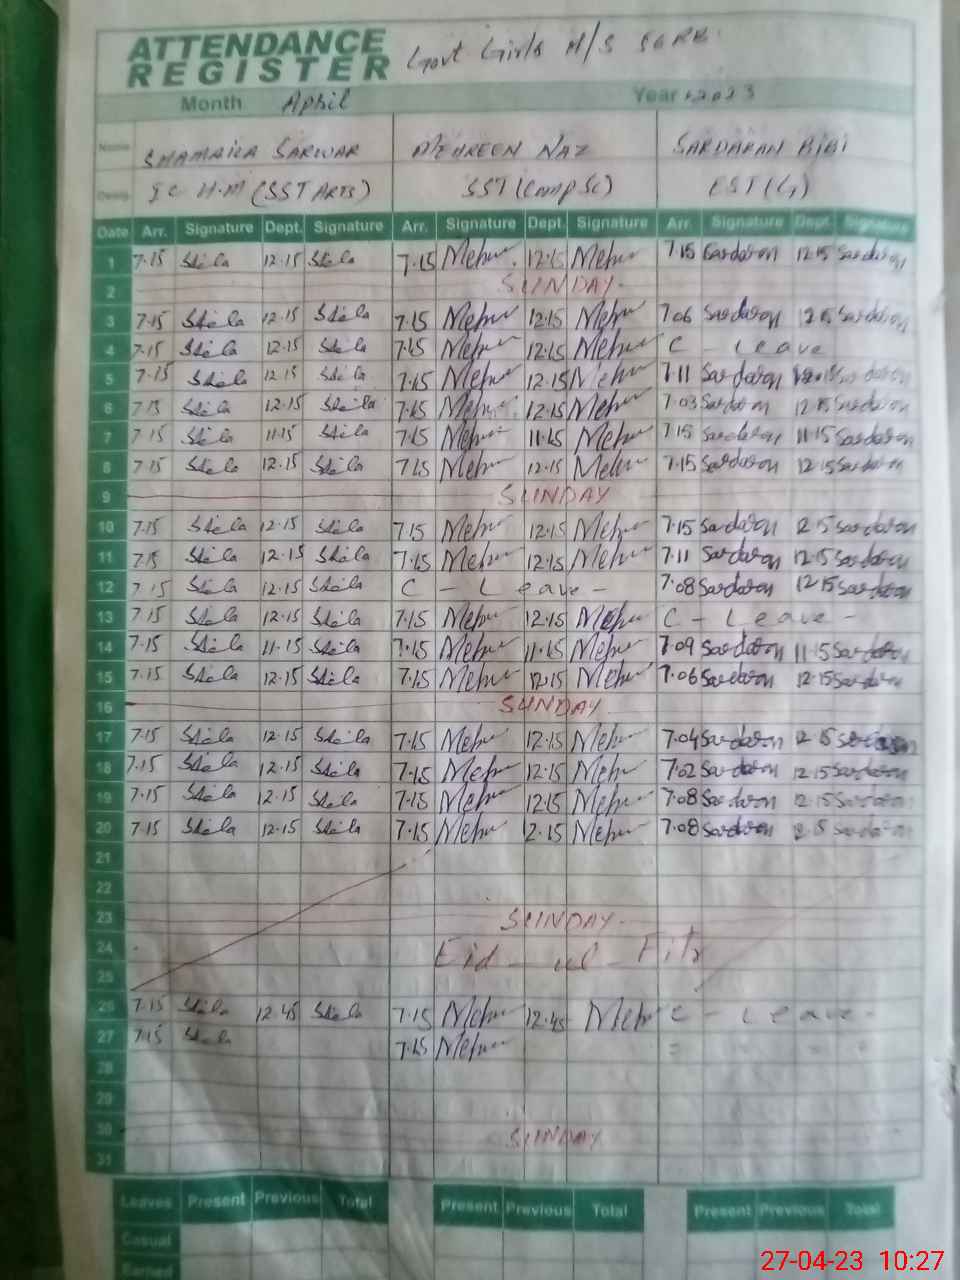 ATTENDANCE REGISTER Govt Girls H/S
Month April Year 2023
Name SHAMAILA SARWAR MEHREEN NAZ SARDARAN BIBI
Desig. I C H.M (SST ARTS) SST (Comp Sc) EST (G)
Date Arr. Signature Dept. Signature Arr. Signature Dept. Signature Arr. Signature Dept. Signature
1 7.15 12.15 7.15 Mehr 12.15 Mehr 7.15 Sardaran 12.15 Sardaran
2 SUNDAY
3 7.15 12.15 7.15 Mehr 12.15 Mehr 7.06 Sardaran Sardaran
4 7.15 12.15 7.15 Mehr 12.15 Mehr C - Leave
5 7.15 12.15 7.15 Mehr 12.15 Mehr 7.11 Sardaran 12.15 Sardaran
6 7.15 12.15 7.15 Mehr 12.15 Mehr 7.03 Sardaran 12.15 Sardaran
7 7.15 11.15 7.15 Mehr 11.15 Mehr 7.15 Sardaran 11.15 Sardaran
8 7.15 12.15 7.15 Mehr 12.15 Mehr 7.15 Sardaran 12.15 Sardaran
9 SUNDAY
10 7.15 12.15 7.15 Mehr 12.15 Mehr 7.15 Sardaran 12.15 Sardaran
11 7.15 12.15 7.15 Mehr 12.15 Mehr 7.11 Sardaran 12.15 Sardaran
12 7.15 12.15 C - Leave - 7.08 Sardaran 12.15 Sardaran
13 7.15 12.15 7.15 Mehr 12.15 Mehr C - Leave -
14 7.15 11.15 7.15 Mehr 11.15 Mehr 7.09 Sardaran 11.15 Sardaran
15 7.15 12.15 7.15 Mehr 12.15 Mehr 7.06 Sardaran 12.15 Sardaran
16 SUNDAY
17 7.15 12.15 7.15 Mehr 12.15 Mehr 7.04 Sardaran 12.15 Sardaran
18 7.15 12.15 7.15 Mehr 12.15 Mehr 7.02 Sardaran 12.15 Sardaran
19 7.15 12.15 7.15 Mehr 12.15 Mehr 7.08 Sardaran 12.15 Sardaran
20 7.15 12.15 7.15 Mehr 12.15 Mehr 7.08 Sardaran 12.15 Sardaran
21
22
23 SUNDAY
24 Eid - ul - Fitr
25
26 7.15 12.45 7.15 Mehr 12.45 Mehr C - Leave -
27 7.15 7.15 Mehr
28
29
30 SUNDAY
31
Leaves Present Previous Total Present Previous Total Present Previous Total
Casual
Earned
27-04-23 10:27